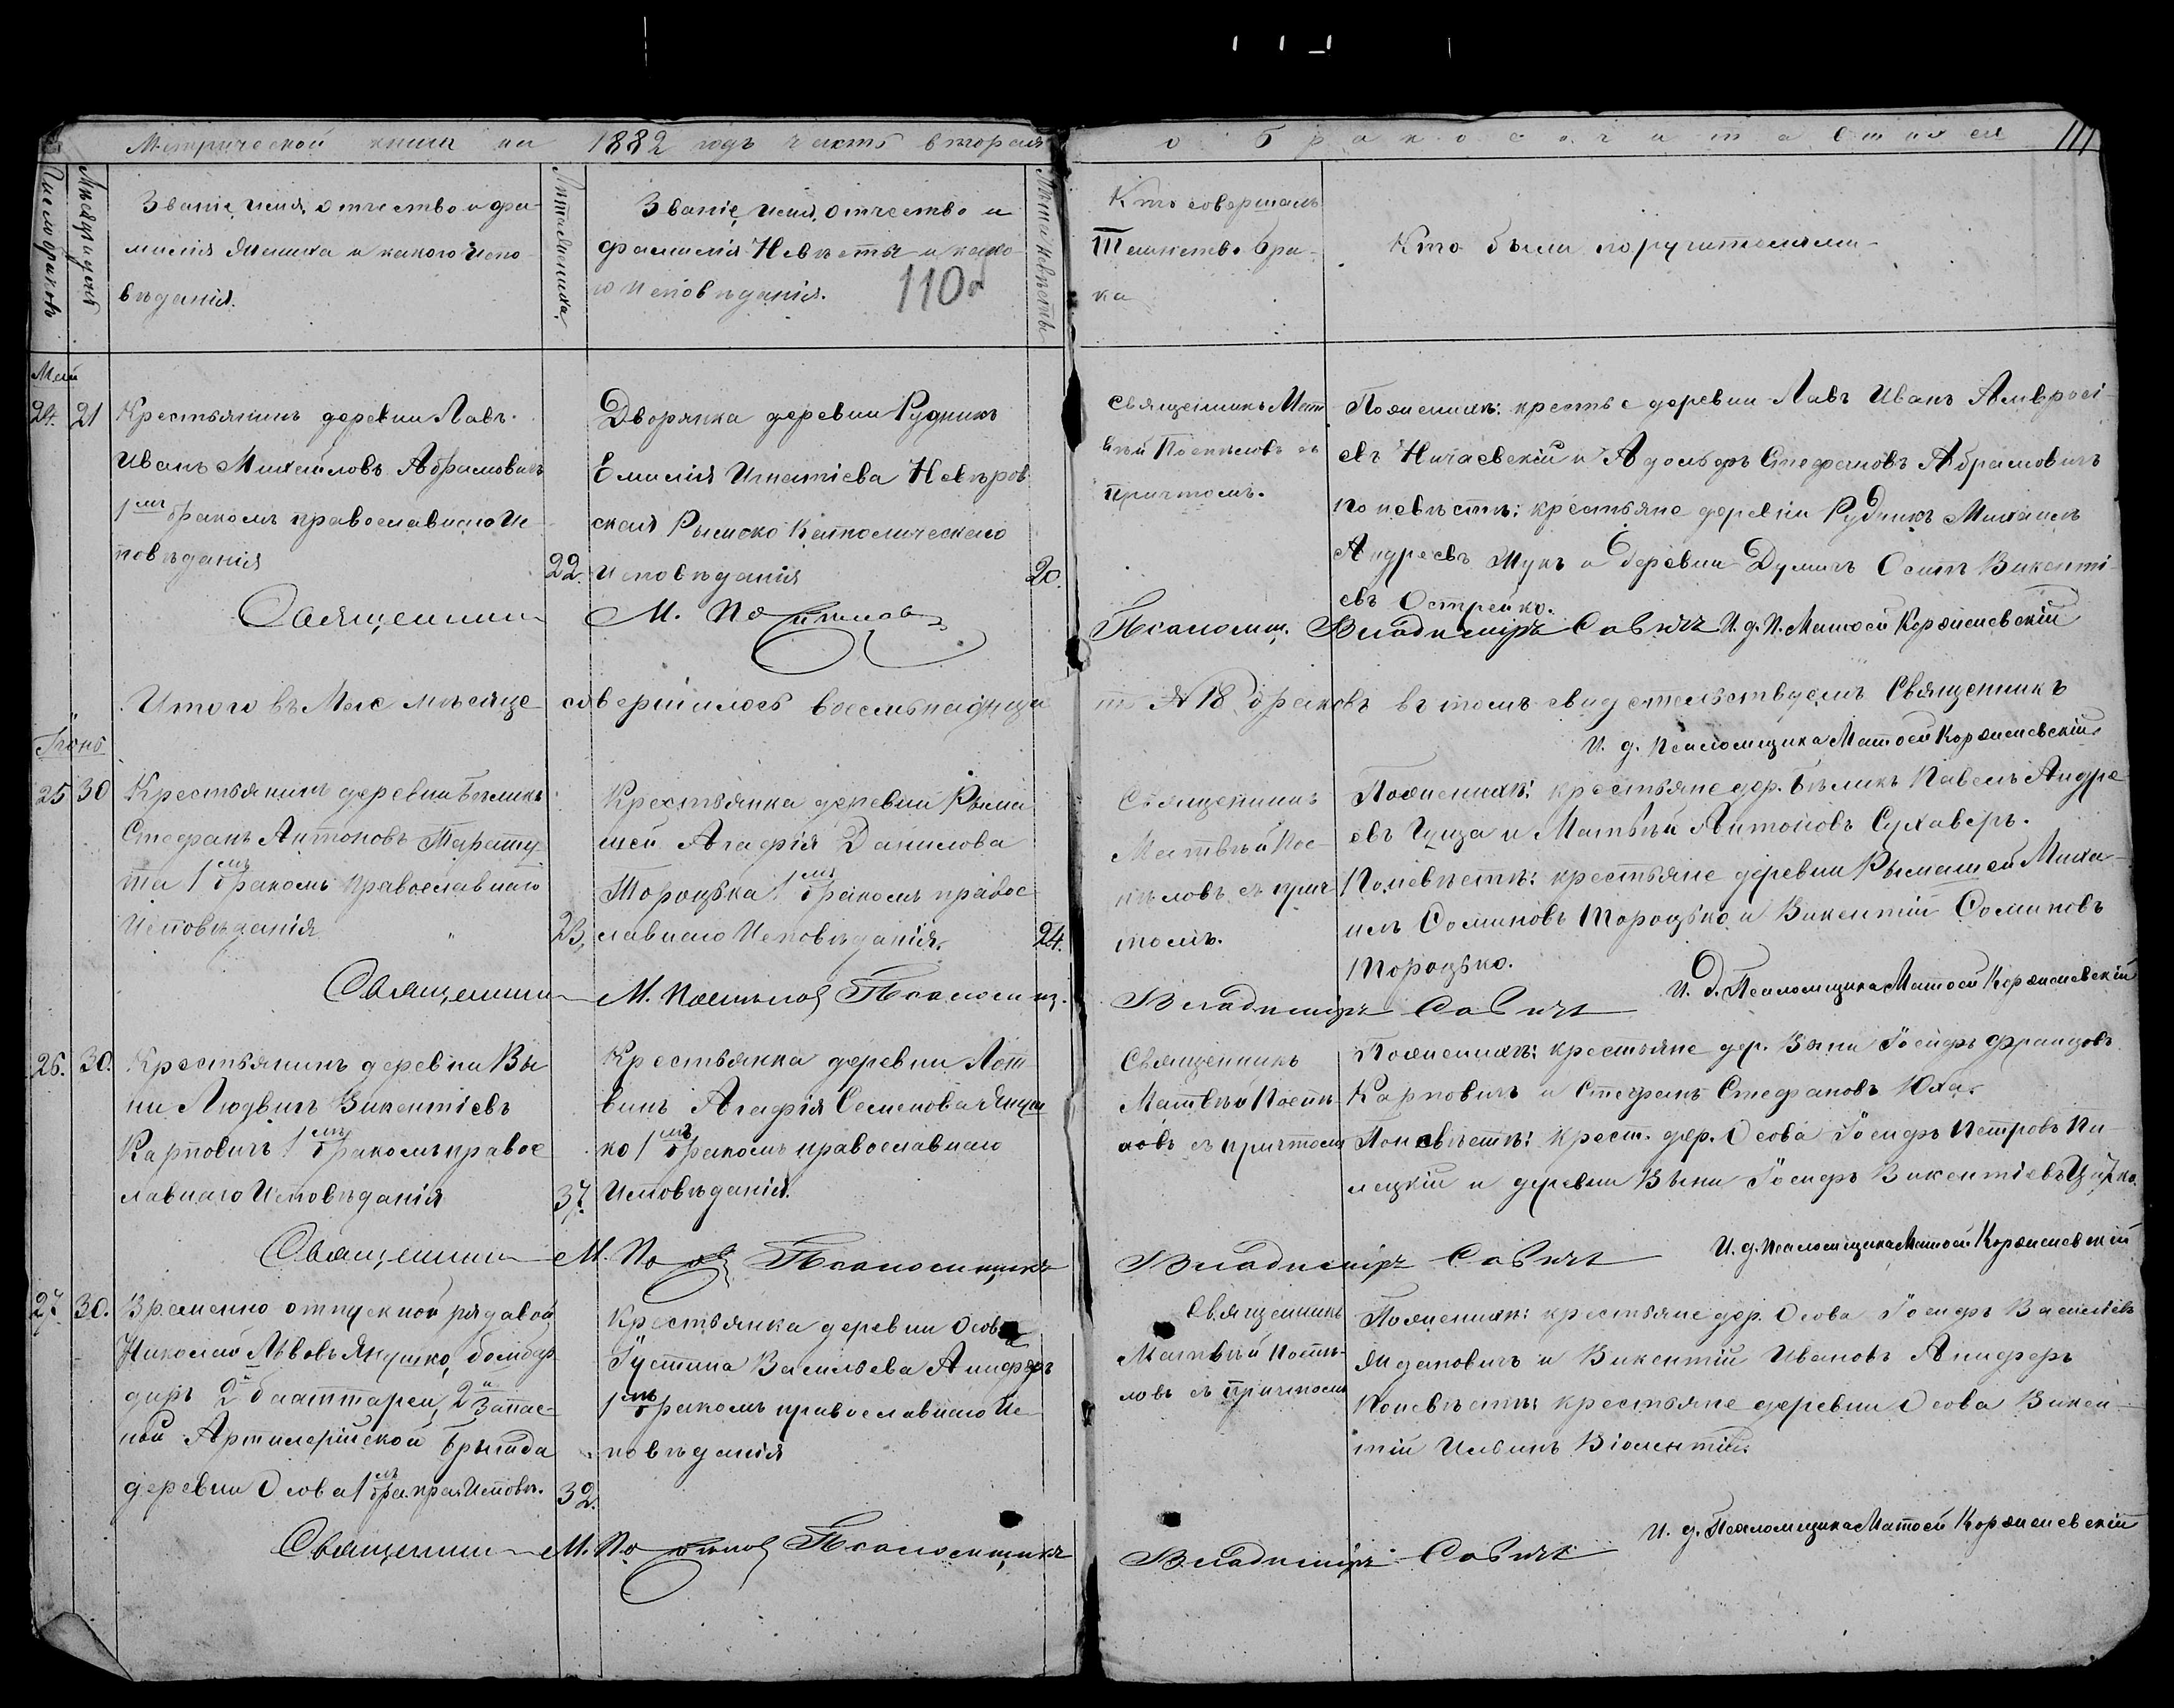 Метрической книги на 1882 годъ часть вторая
о бракосочитавшихся 111
Число браковъ
Мѣсяцъ и день
Званіе, имя, отчество и фа-
милія жениха и какого испо-
вѣданія.
Лѣта жениха.
Званіе, имя, отчество и
фамилія Невѣсты и како-
го исповѣданія.
110
Лѣта невѣсты
Кто совершалъ
Таинство бра-
ка
Кто были поручителями
Май
24. 21
Крестьянинъ деревни Лавъ
Иванъ Михайловъ Абрамовичъ
1мъ бракомъ православнаго Ис-
повѣданія
22.
Дворянка деревни Рудникъ
Емилія Игнатіева Невѣров
ская Рымско Католическаго
исповѣданія
20.
Священникъ Мат
вѣй Постѣловъ съ
причтомъ.
По женихѣ: крестьяне деревни Лавъ Иванъ Амвросі-
евъ Ничаевскій и Адольфъ Стефановъ Абрамовичъ
по невѣстѣ: крестьяне деревни Рудникъ Михаилъ
Андреевъ Жукъ и деревни Думичъ Осипъ Викенті-
евъ Острейко.
Священник М.
Псаломщ. Владиміръ Савичъ И. д. П. Матвей Корженевскій
Итого въ Мае месяце совершилось восемьнадца
ть № 18 браковъ въ томъ свидетельствуемъ Священникъ
И. д. Псаломщика Матвей Корженевскій
Іюнь
25 30
Крестьянинъ деревни Бѣликъ
Стефанъ Антоновъ Тарашу
та 1мъ бракомъ православнаго
Исповѣданія
23.
Крестьянка деревни Рыма
шей Агафія Данилова
Тороцька 1мъ бракомъ правос
лавнаго Исповѣданія.
24.
Священникъ
Матвѣй Пос-
тѣловъ съ прич
томъ.
По женихѣ: крестьяне дер. Бѣликъ Павелъ Андре
евъ Гуща и Матвѣй Антоновъ Сухаверъ.
По невѣстѣ: крестьяне деревни Рымашей Миха-
илъ Соминовъ Тороцько и Викентій Соминовъ
Тороцько.
Священник М. Постѣлов Псаломщ.
Владиміръ Савичъ
И. д. Псаломщика Матвей Корженевскій
26. 30.
Крестьянинъ деревни Вы
ни Людвигъ Викентіевъ
Карповичъ 1мъ бракомъ правос
лавнаго Исповѣданія
37.
Крестьянка деревни Лот
винъ Агафія Семенова Януш
ко 1мъ бракомъ православнаго
Исповѣданія.
Священникъ
Матвѣй Постѣ
ловъ съ причтомъ
По женихѣ: крестьяне дер. Выни Іосифъ Францовъ
Карповичъ и Стефанъ Стефановъ Юха.
По невѣстѣ: Крест. дер. Осова Іосифъ Петровъ Пи-
лецкій и деревни Выни Іосифъ Викентіевъ
Священник М. Псаломщикъ
Владиміръ Савичъ
И. д. Псаломщика Матвей Корженевскій
27. 30.
Временно отпускной рядавой
Николай Львовъ Янушко, бомбар
диръ 2й баттареи, 2й Запас-
ной Артилерійской Брыгады
деревни Осова 1мъ бра. пра. Исповѣ.
32.
Крестьянка деревни Осова
Іустина Васильева Анцыферъ
1мъ бракомъ православнаго Ис-
повѣданія
Священникъ
Матвѣй Постѣ-
ловъ съ причтомъ
По женихѣ: крестьяне дер. Осова Іосифъ Васильевъ
Ждановичъ и Викентій Ивановъ Анцыферъ
По невѣстѣ: крестьяне деревни Осова Викен-
тій
Священник М. Псаломщикъ
Владиміръ Савичъ
И. д. Псаломщика Матвей Корженевскій